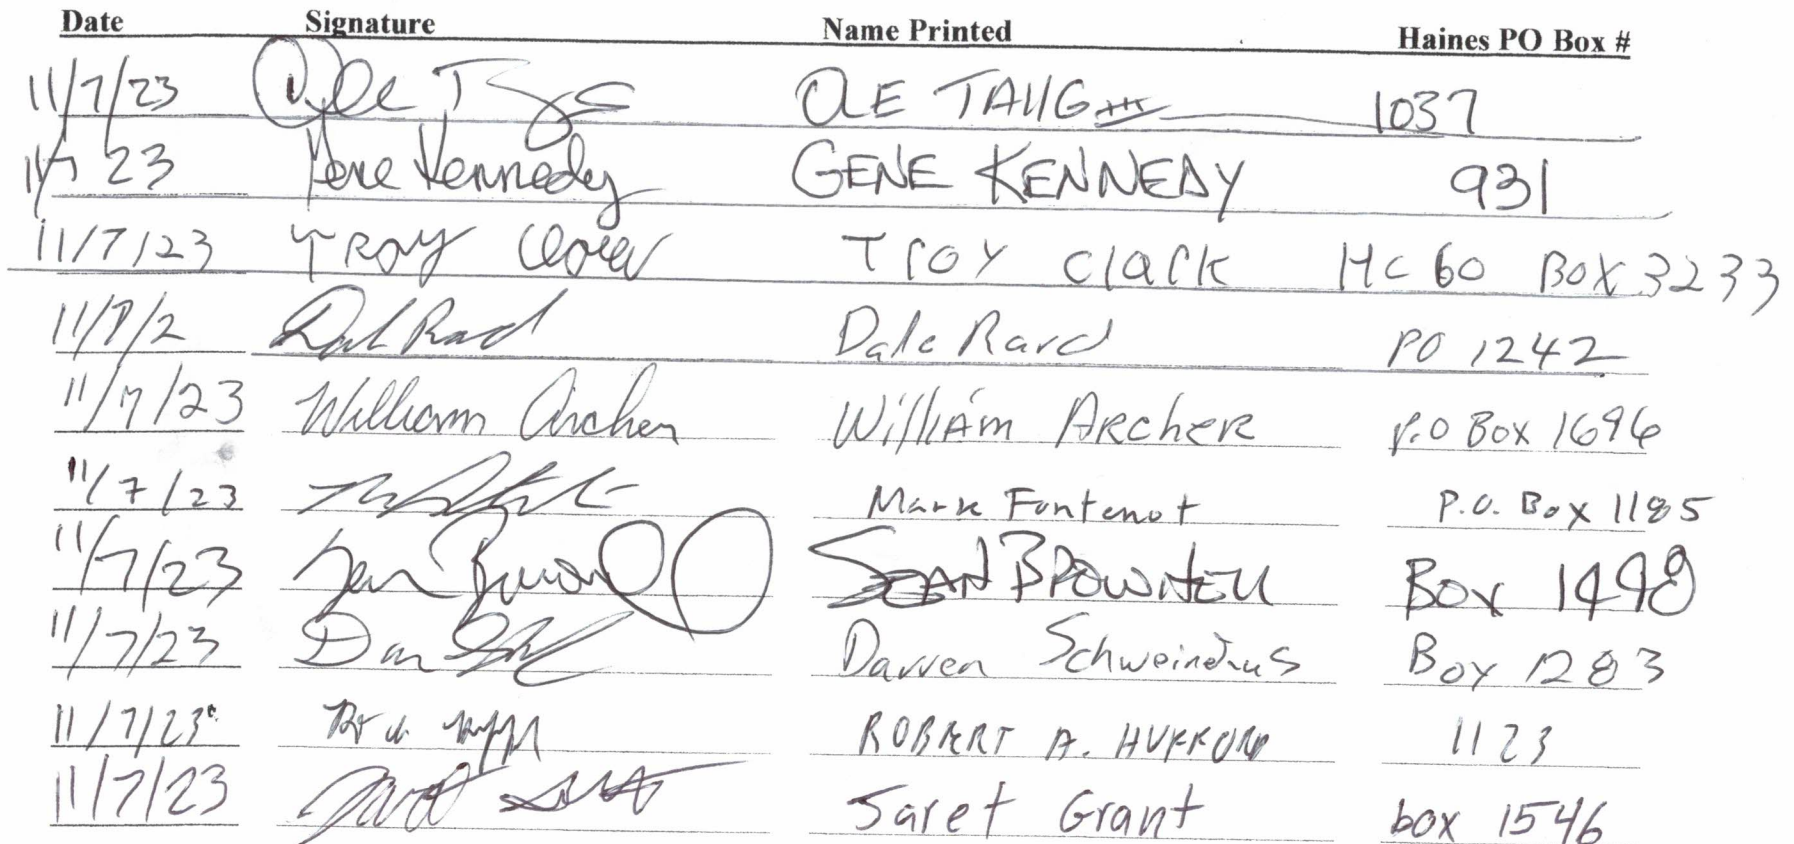 Date Signature Name Printed Haines PO Box #
11/7/23 Ole T OLE TAUG 1037
11/7 23 Gene Kennedy GENE KENNEDY 931
11/7/23 TROY Clark Troy Clark HC 60 BOX 3233
11/8/2 Dale Rard PO 1242
11/7/23 William Archer William Archer P.O Box 1696
11/7/23 Mark Fontenot P.O. Box 1185
11/7/23 Sean Brownell SEAN BROWNELL Box 1498
11/7/23 Darren Box 1283
11/7/23 ROBERT A. 1123
11/7/23 Jaret Grant box 1546